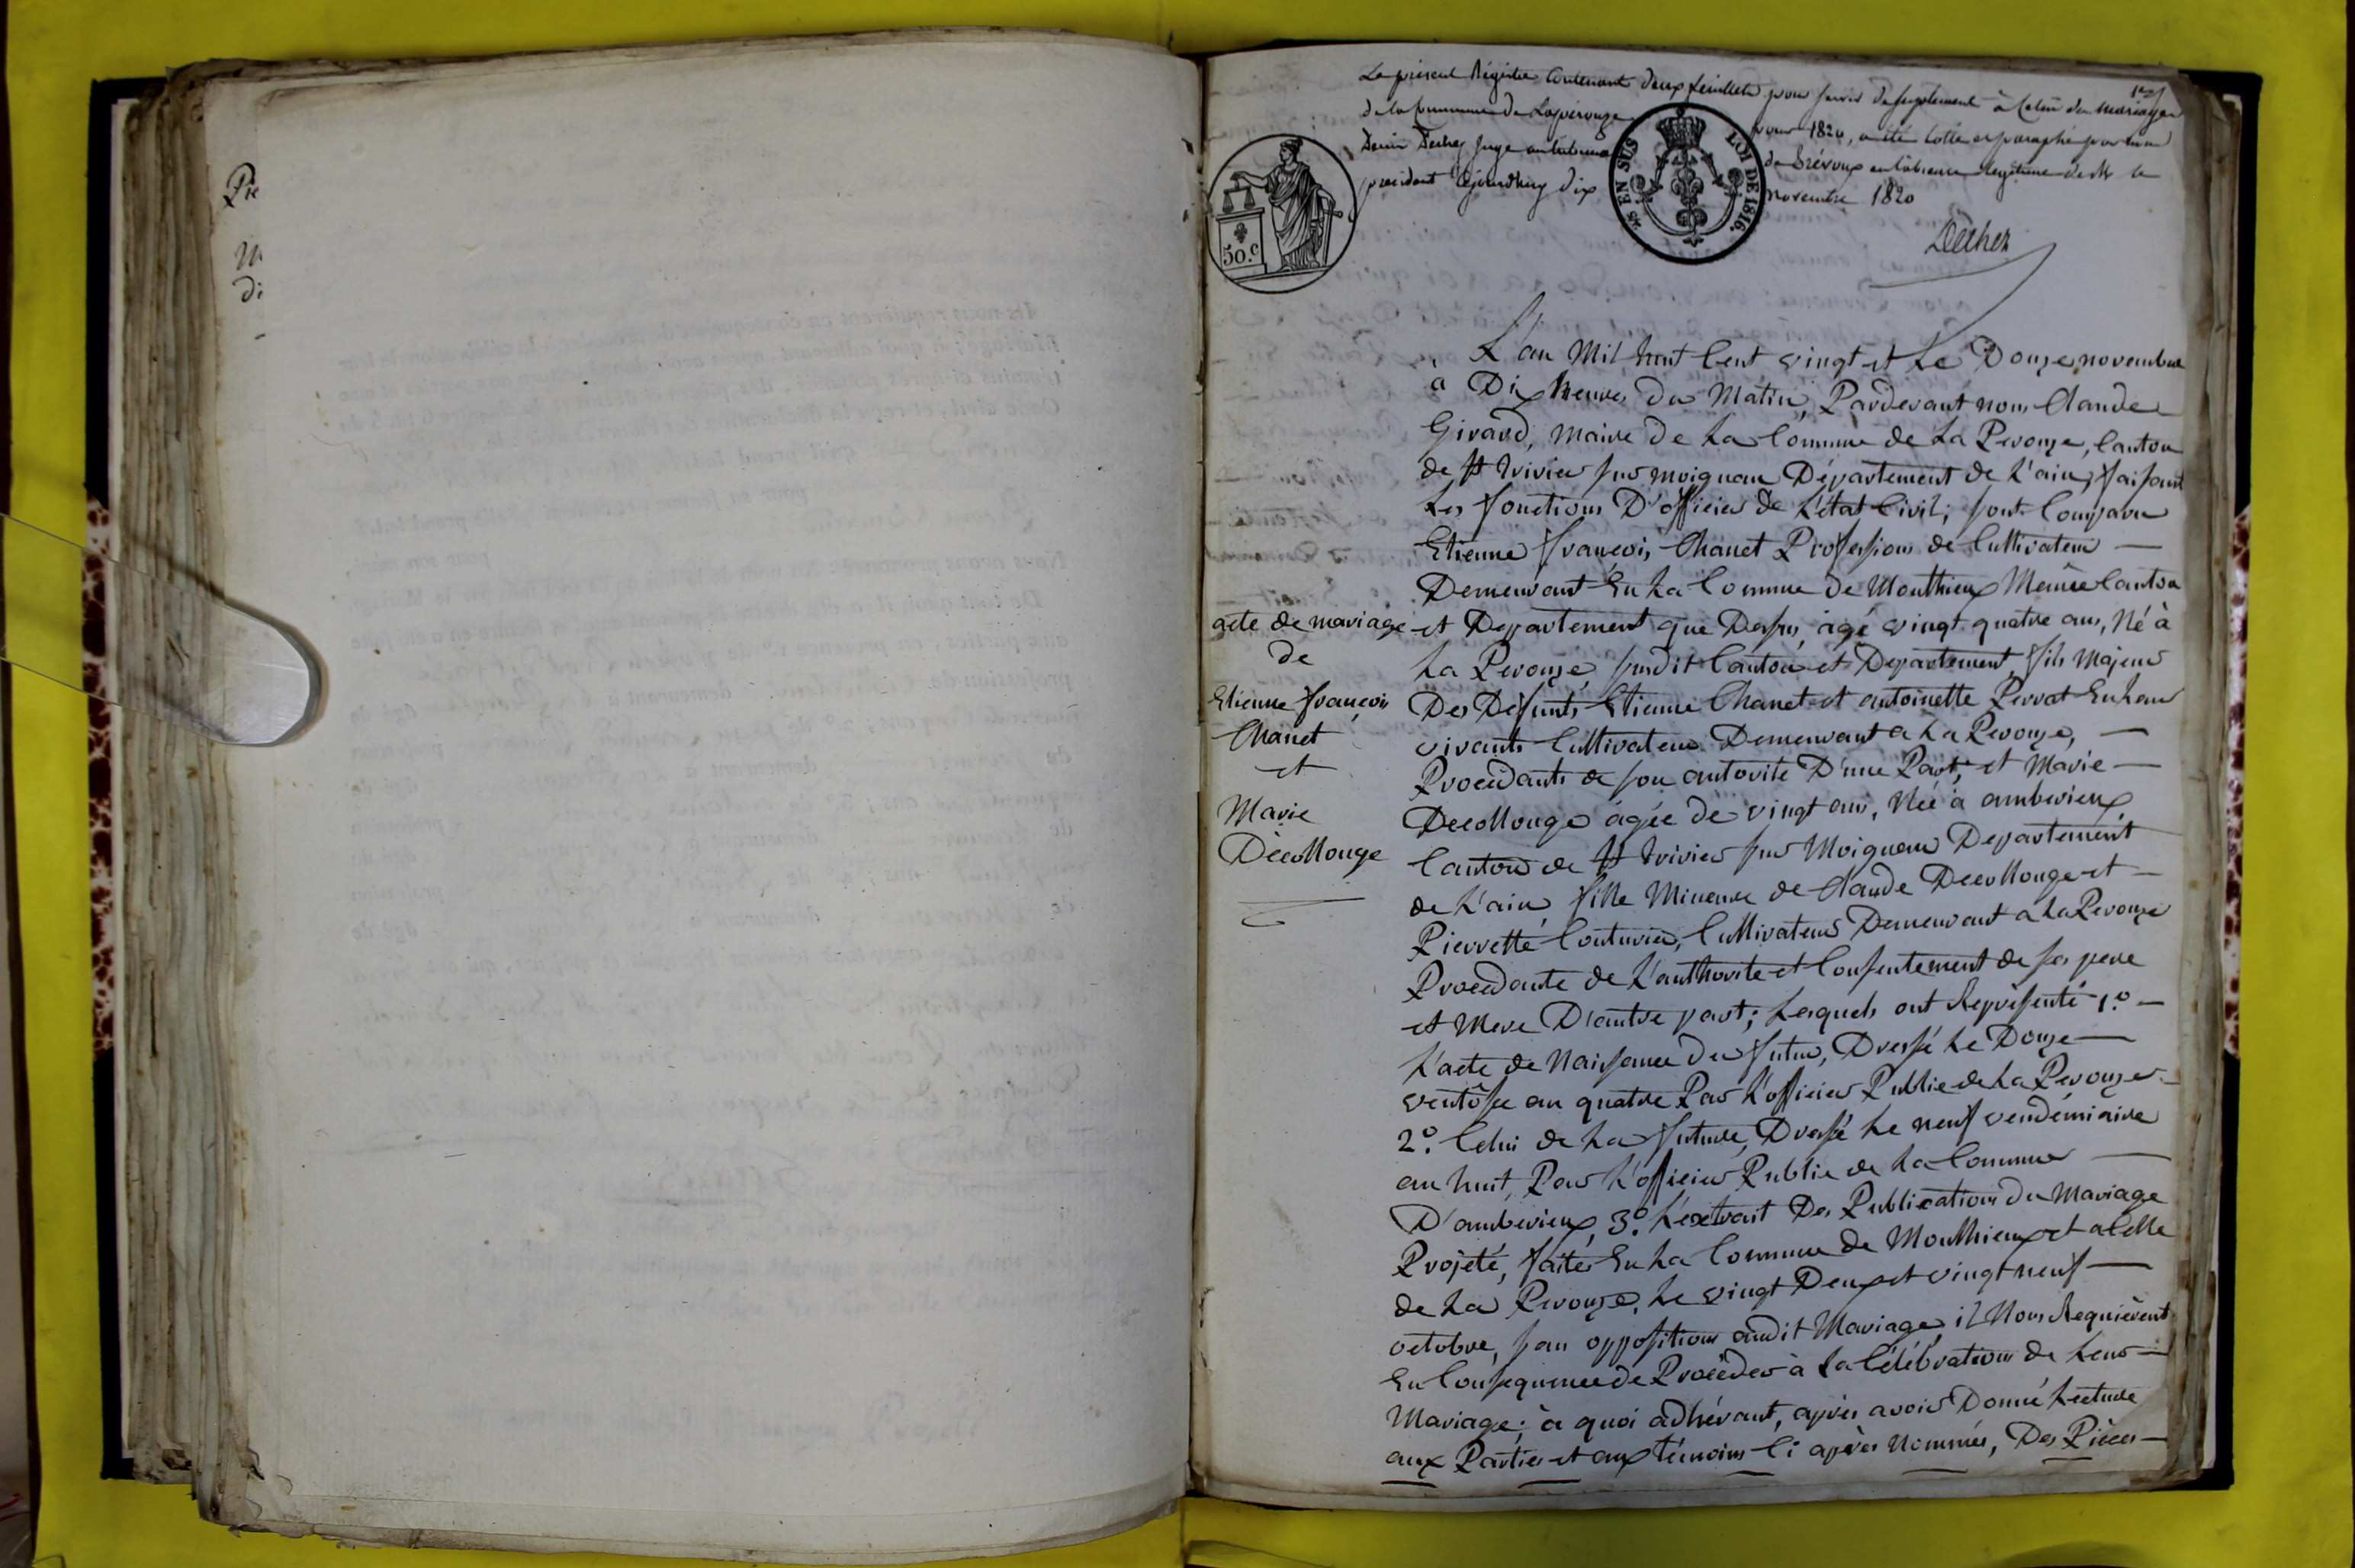 Pie
M
di
1er
Le présent Régistre Contenant deux feuillets pour servir de suplement à celui des mariages
de la Commune de Lapérouze pour 1820, a été Cotté et paraphé par nous
Denis Dechez Juge au tribunal de Trévoux en l'absence légitime de Mr le
président Cejourdhuy dix novembre 1820
Dechez
50.c
EN SUS
LOI DE 1816.
L'an Mil huit Cent vingt et Le Douze novembre
à Dix heures du Matin, Pardevant nous Claude
Girard, maire de La Commune de La Perouze, Canton
de St trivier sur moignan Département de L'ain, faisant
Les fonctions D'officier de L'état Civil; sont Comparu
Etienne françois Chanet Profession de Cultivateur —
Demeurant En La Commune de Monthieux Même Canton
et Departement que Dessus, âgé vingt quatre ans, Né à
La Perouze, susdit Canton et Departement, fils Majeur
Des Défunts Etienne Chanet et antoinette Perrat En Leur
vivants Cultivateur Demeurant a La Perouze, —
Procédants de son autorite D'une Part; et Marie —
Decollonge âgée de vingt ans, Née à amberieux
Canton de St trivier sur Moignan Departement
de L'ain, fille Mineure de Claude Decollonge et —
Pierrette Couturier, Cultivateurs Demeurant a La Perouze
Procedante de L'authorite et Consentement de ses pere
et Mere D'autre part; Lesquels ont Représenté 1.º —
L'acte de Naissance du futur, Dressé Le Douze —
ventôse an quatre Par L'officier Public de La Perouze —
2.º Celui de La future, Dressé Le neuf vendémiaire
an huit, Par L'officier Public de La Commune —
D'amberieux, 3.º L'extrait Des Publications du Mariage
Projeté, faites En La Commune de Monthieux et a Celle
de La Perouze, Le vingt Deux et vingt neuf —
octobre, san opposition audit Mariage, il Nous Requièrent
En Consequence de Procéder à La Célébration de Leur —
Mariage; à quoi adhérant, après avoir Donné Lecture
aux Parties et aux témoins Ci après Nommés, Des Pièces —
acte de mariage
de
Etienne françois
Chanet
et
Marie
Decollonge